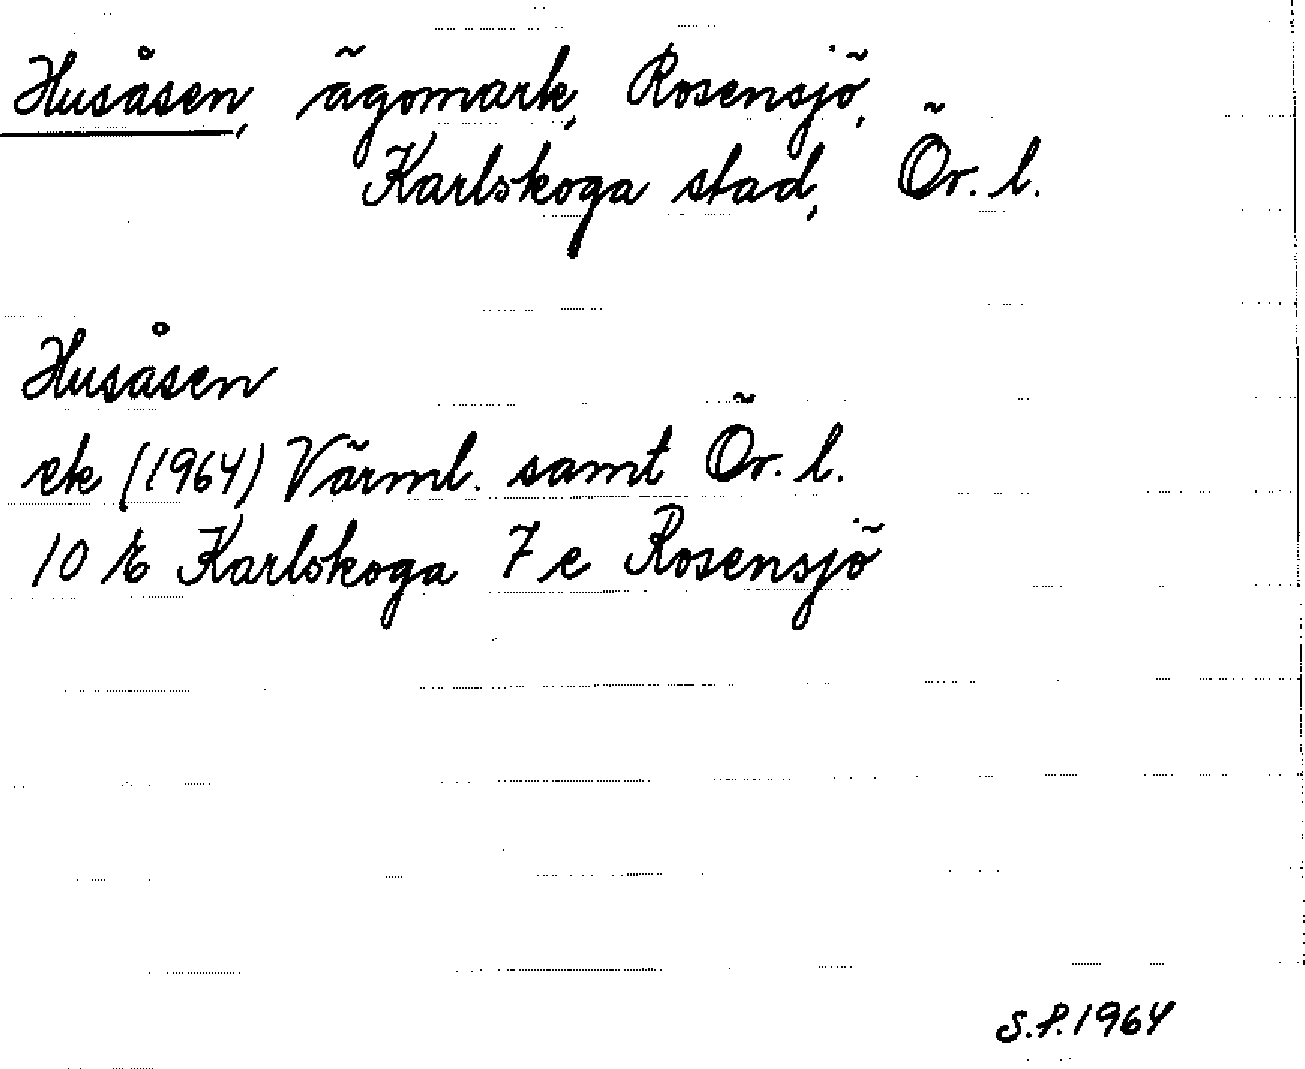 Husåsen, ägomark, Rosensjö,
Karlskoga stad, Ör. l.
Husåsen
ek (1964) Värml. samt Ör. l.
10 E Karlskoga 7 e Rosensjö
S.P. 1964